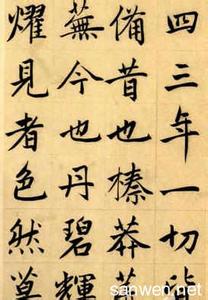 四三年一切
備昔也榛莽
蕪今也丹碧輝
燿見者色然
sanwen.net